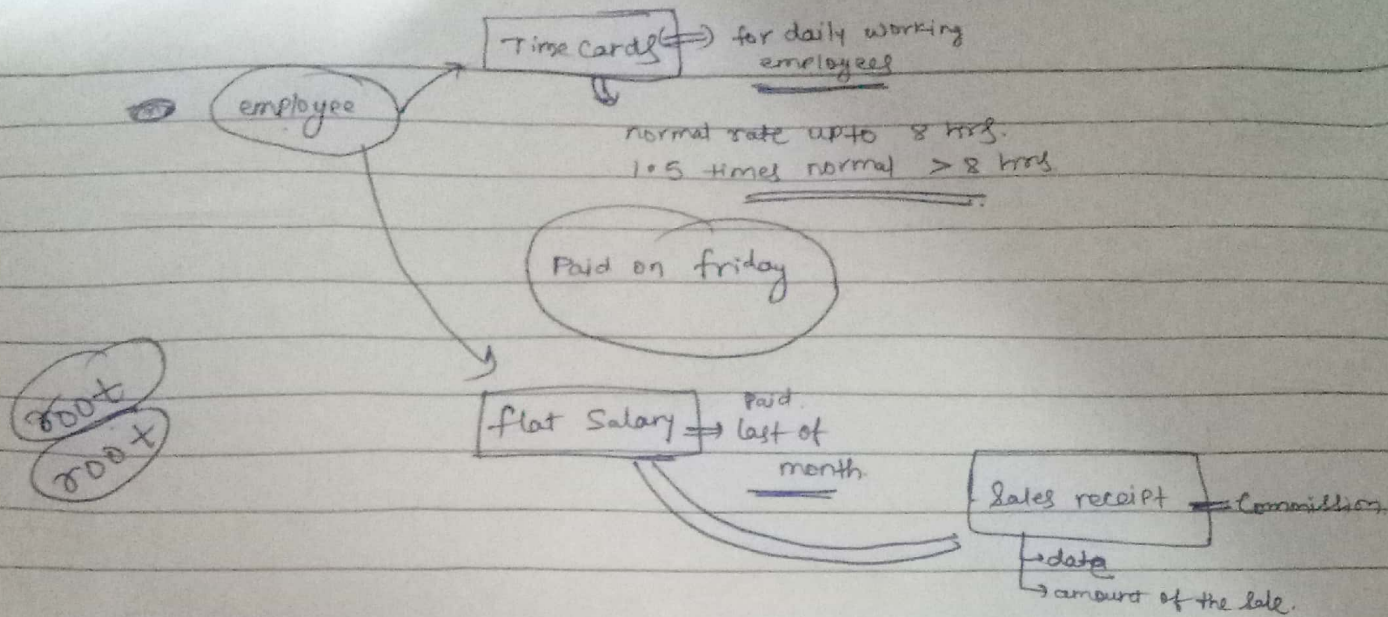 Time Cards
for daily working
employees
employee
normal rate upto 8 hrs.
1.5 times normal > 8 hrs
Paid on friday
root
root
flat Salary
Paid
last of
month
Sales receipt
Commission
date
amount of the sale.